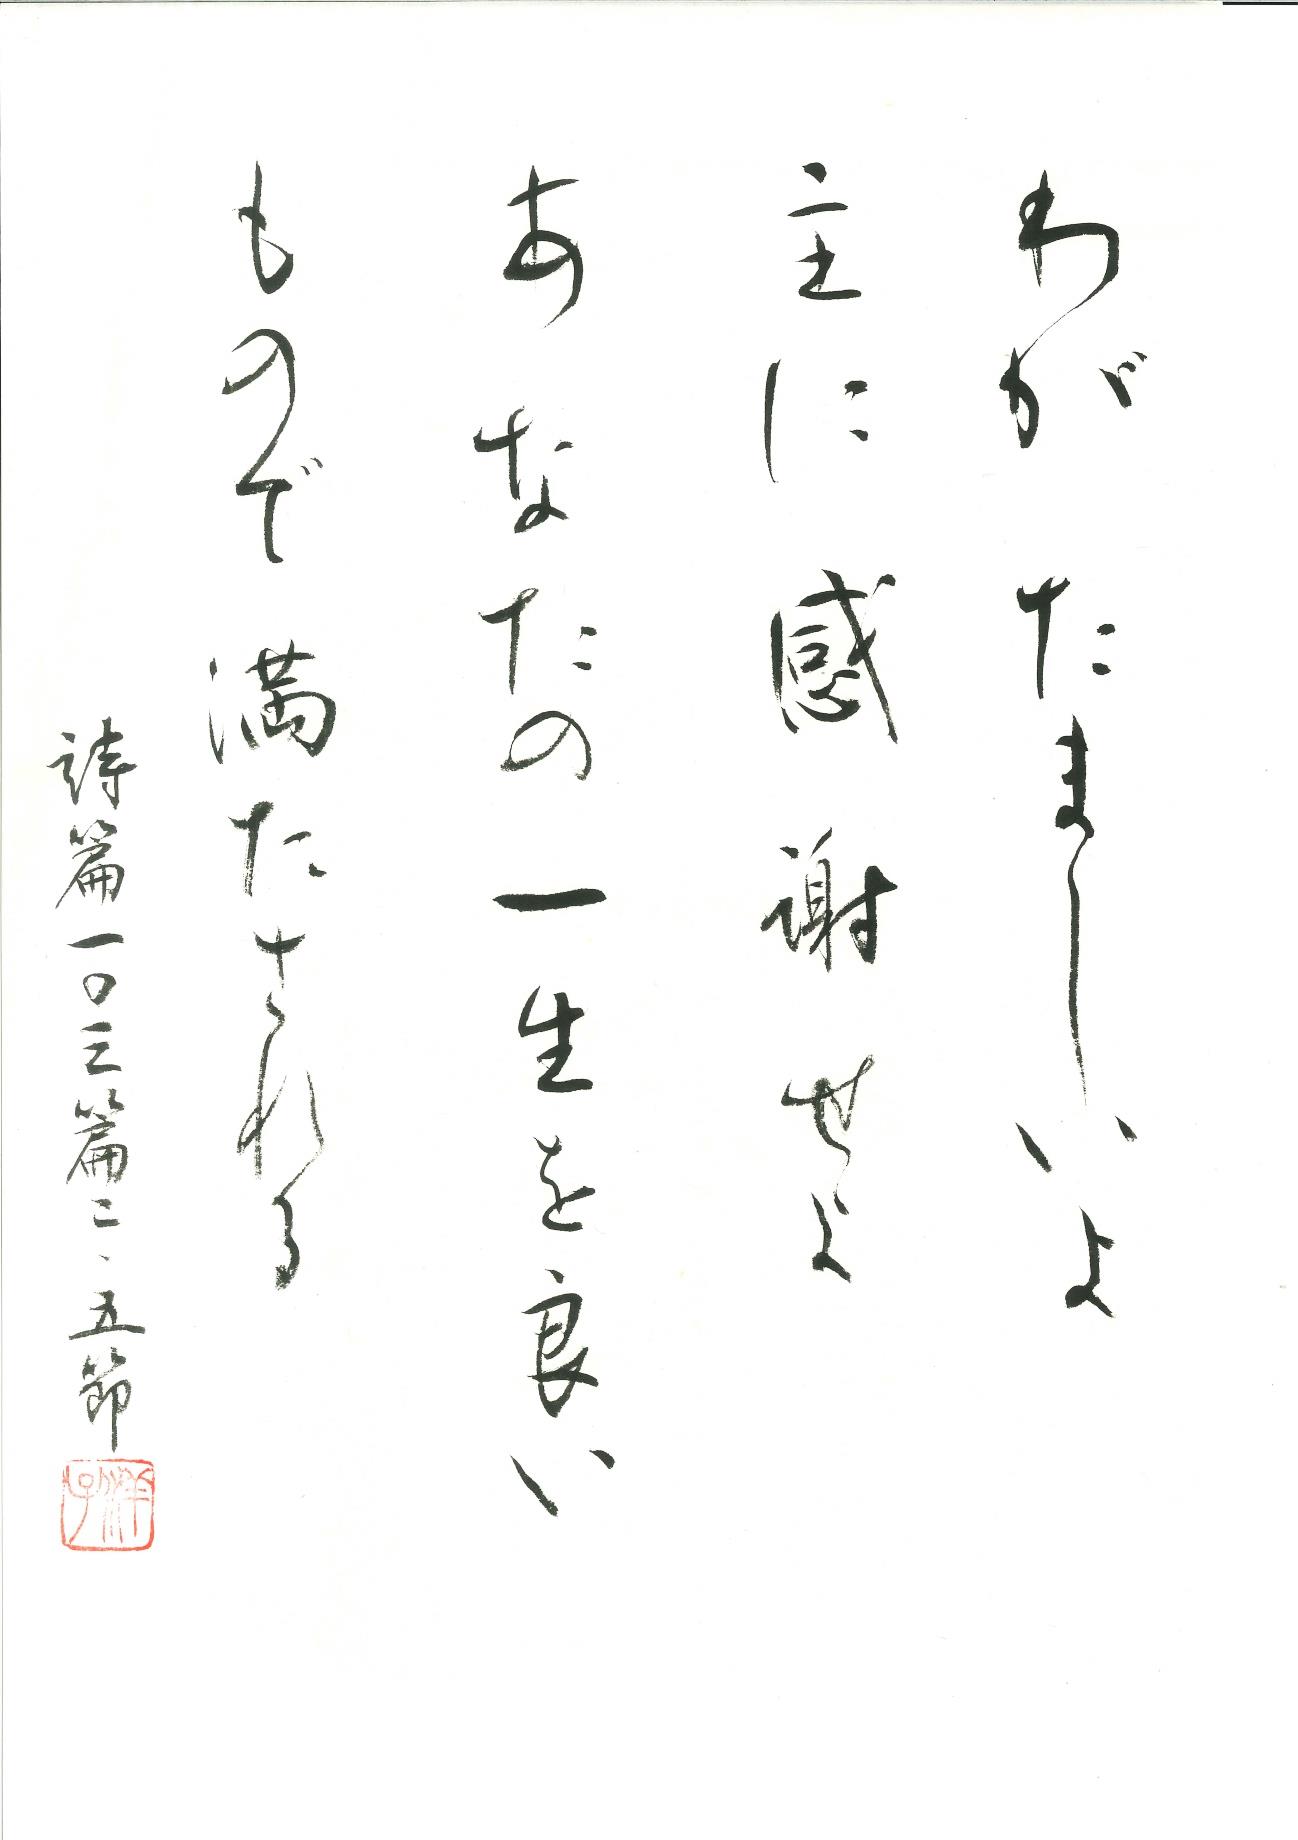 わがたましいよ
主に感謝せよ
あなたの一生を良い
もので満たされる
詩篇一〇三篇二、五節
洋子